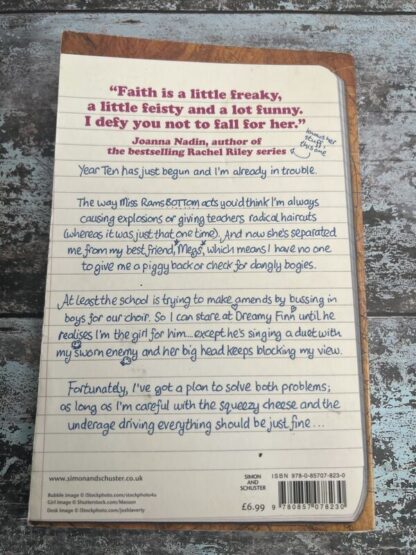 “Faith is a little freaky,
a little feisty and a lot funny.
I defy you not to fall for her.”
Joanna Nadin, author of
the bestselling Rachel Riley series
knows her
stuff,
this one
Year Ten has just begun and I'm already in trouble.
The way Miss RamsBOTTOM acts you'd think I'm always
causing explosions or giving teachers radical haircuts
(whereas it was just that one time). And now she's separated
me from my best friend, Megs, which means I have no one
to give me a piggy back or check for dangly bogies.
At least the school is trying to make amends by bussing in
boys for our choir. So I can stare at Dreamy Finn until he
realises I'm the girl for him...except he's singing a duet with
my sworn enemy and her big head keeps blocking my view.
Fortunately, I've got a plan to solve both problems;
as long as I'm careful with the squeezy cheese and the
underage driving everything should be just fine...
www.simonandschuster.co.uk
Bubble image © iStockphoto.com/stockphoto4u
Girl image © Shutterstock.com/Maison
Desk image © iStockphoto.com/joshlaverty
SIMON
AND
SCHUSTER
£6.99
ISBN 978-0-85707-823-0
9 780857 078230